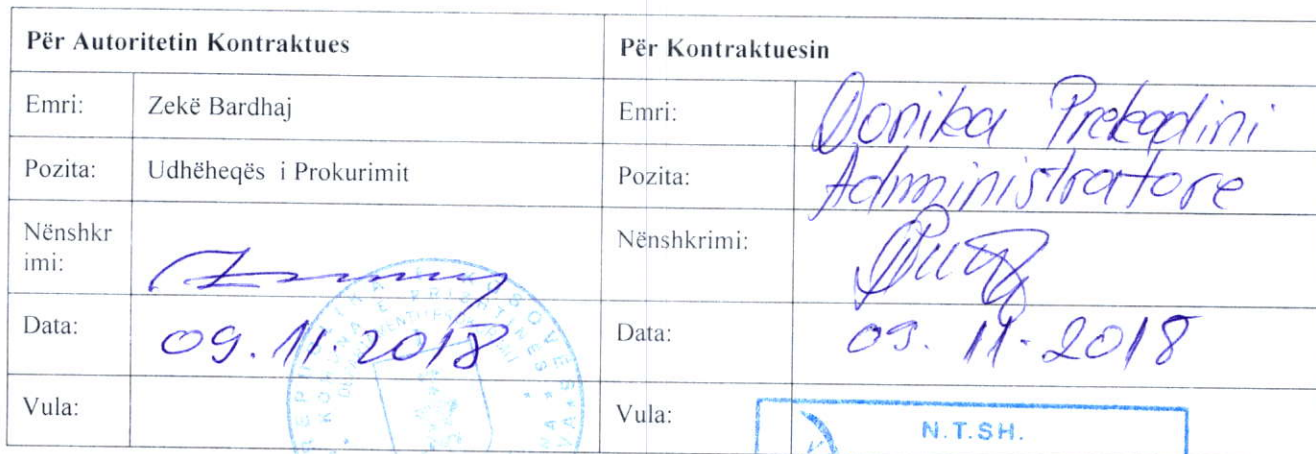 Për Autoritetin Kontraktues Për Kontraktuesin
Emri: Zekë Bardhaj Emri: Donika Prekadini
Pozita: Udhëheqës i Prokurimit Pozita: Administratore
Nënshkr Nënshkrimi:
imi:
Data: 09.11.2018 Data: 09.11.2018
Vula: Vula:
N.T.SH.